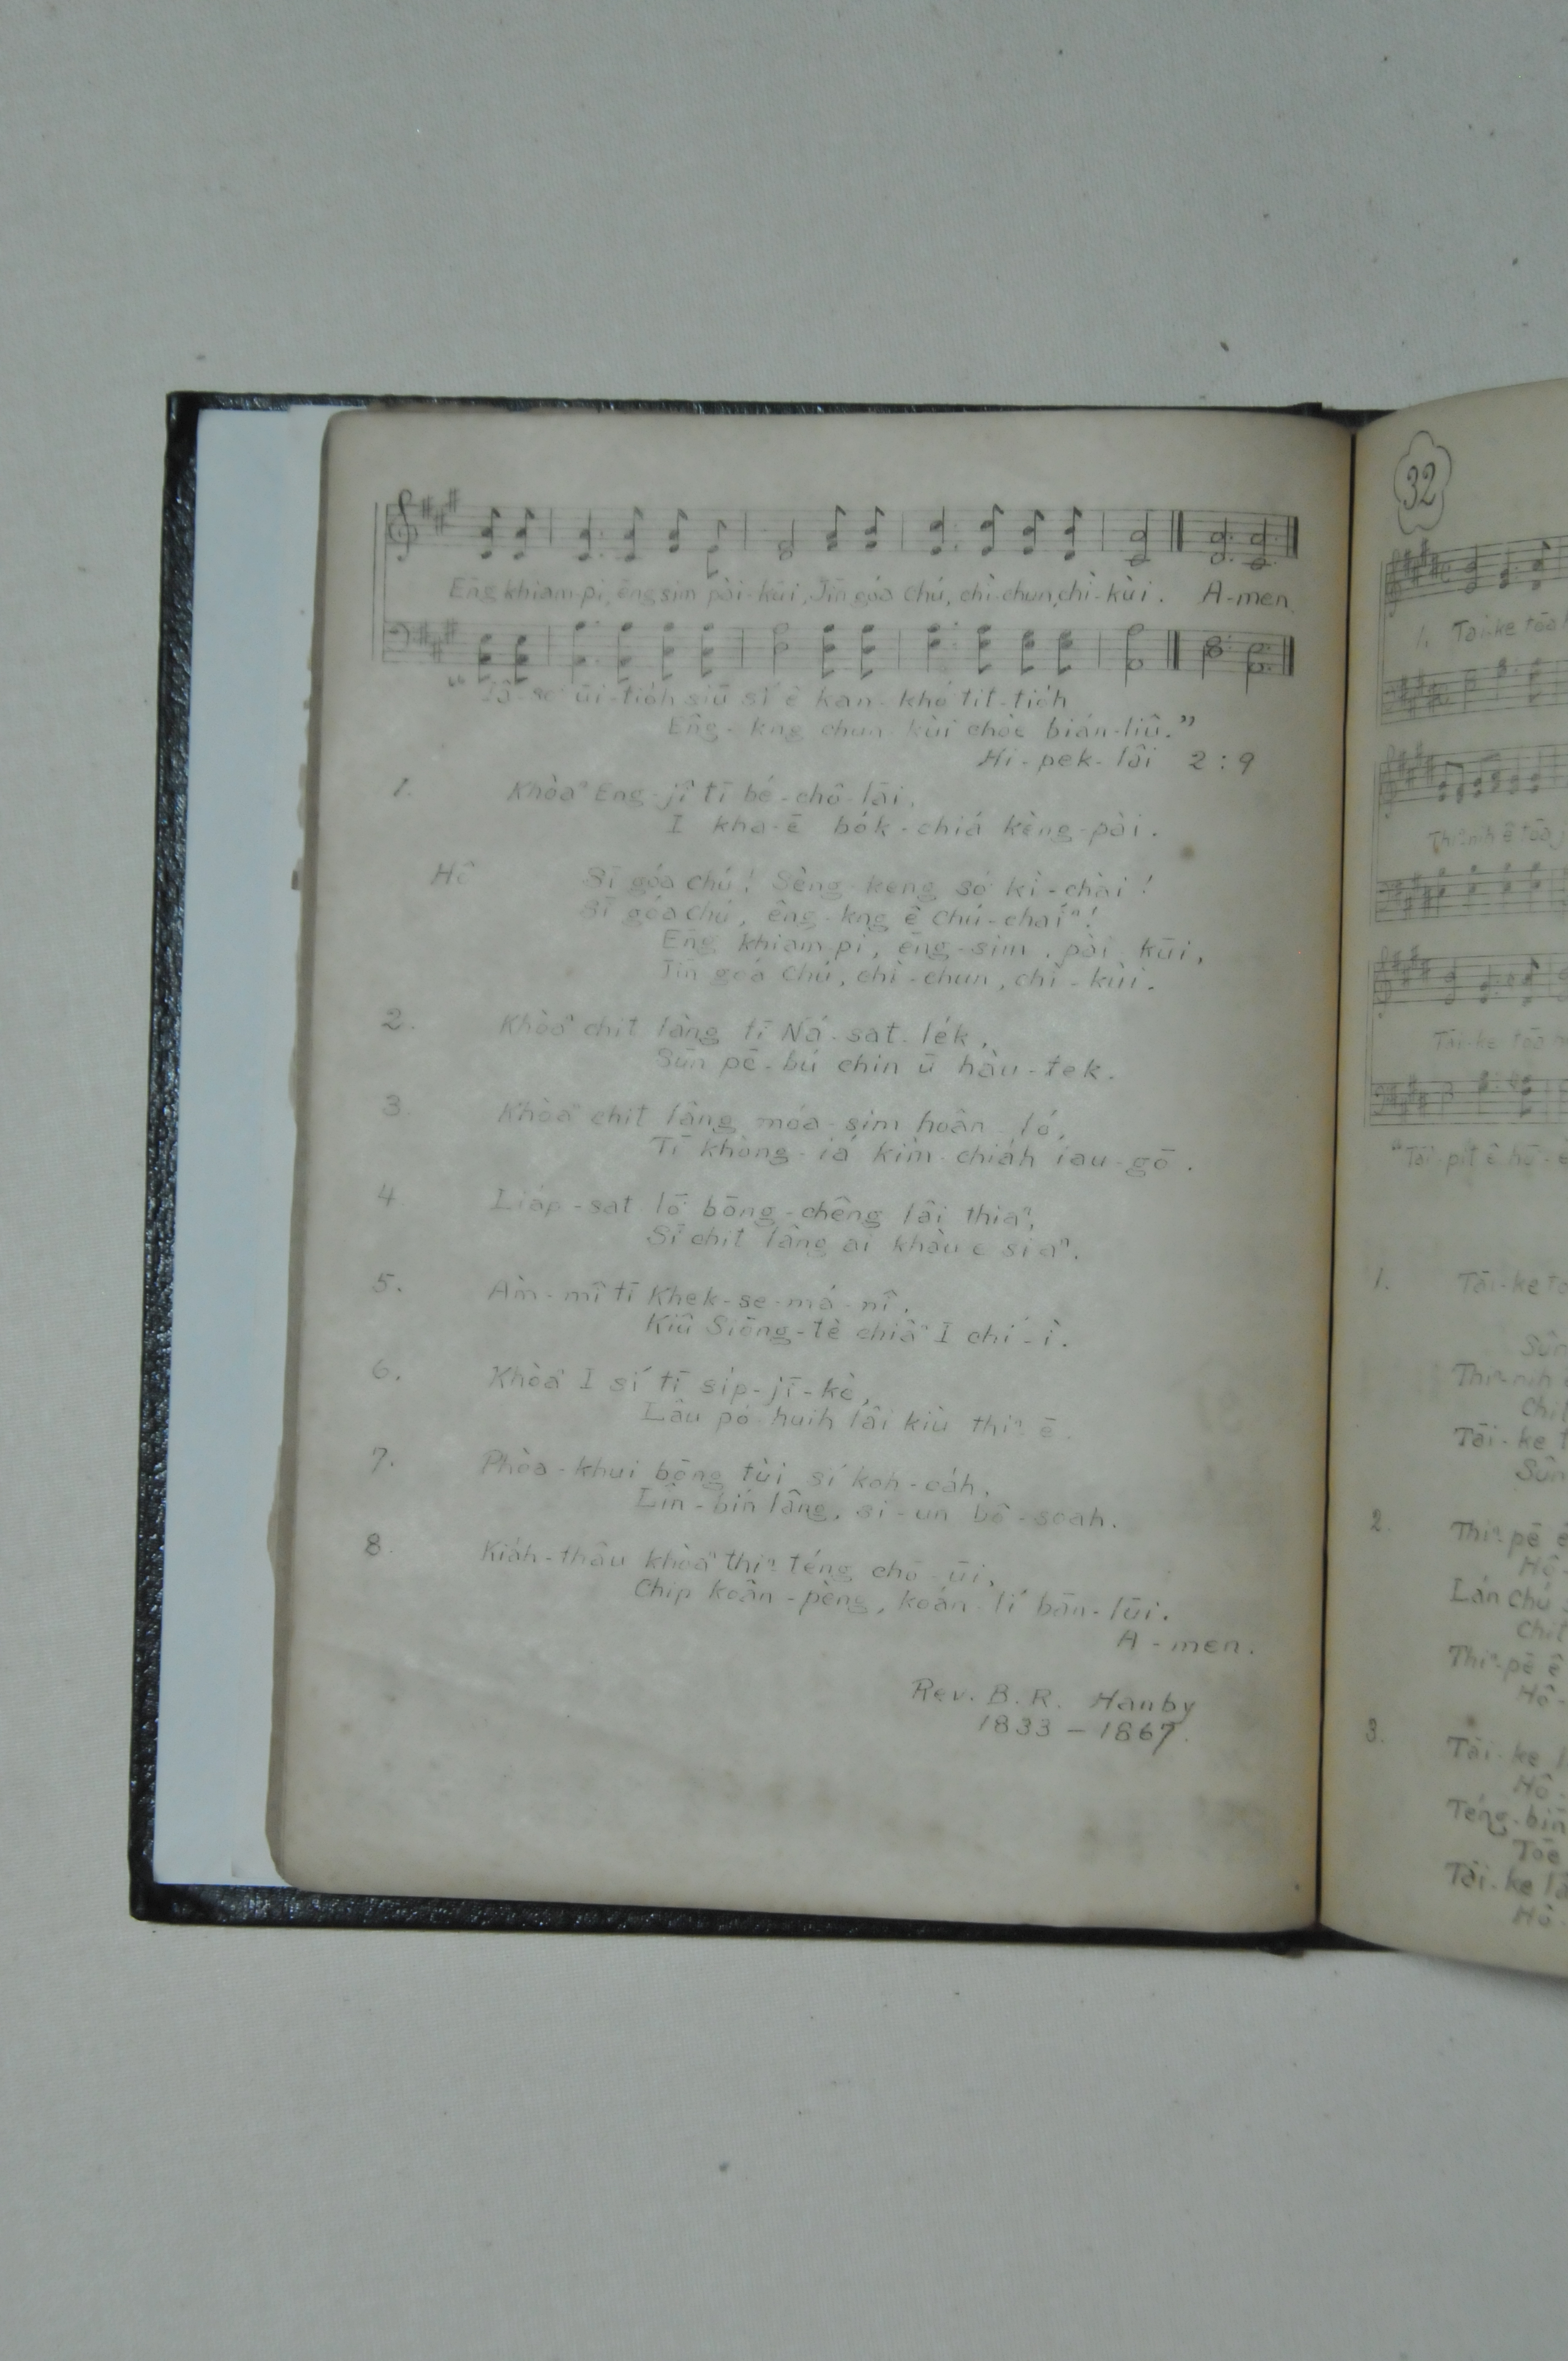 Ēng khiam-pi, ēng sim pài-kūi, Jīn góa Chú, chì-chun, chì-kùi. A-men.
"Iâ-so͘ ūi-tio̍h siū sí ê kan-khó͘ tit-tio̍h
Êng-kng chun-kùi chòe bián-liû."
Hi-pek-lâi 2 : 9
1. Khòaⁿ Eng-jî tī bé-chô lāi,
I kha-ē bo̍k-chiá kèng-pài.
Hô Sī góa Chú! Sèng-keng só͘ kì-chài!
Sī góa Chú, êng-kng ê Chú-cháiⁿ!
Ēng khiam-pi, ēng-sim, pài-kūi,
Jīn góa Chú, chì-chun, chì-kùi.
2. Khòaⁿ chit lâng tī Ná-sat-le̍k,
Sūn pē-bú chin ū hàu-tek.
3. Khòaⁿ chit lâng móa-sim hoân-ló,
Tī khòng-iá kìm-chia̍h iau-gō.
4. Lia̍p-sat lō͘ bōng-chêng lâi thiaⁿ,
Sī chit lâng ai khàu ê siaⁿ.
5. Àm-mî tī Khek-se-má-nî,
Kiû Siōng-tè chiâⁿ I chí-ì.
6. Khòaⁿ I sí tī si̍p-jī-kè,
Lâu pó-huih lâi kiù thiⁿ-ē.
7. Phòa-khui bōng tùi sí koh-oa̍h,
Lîn-bín lâng, si-un bô-soah.
8. Kia̍h-thâu khòaⁿ thiⁿ-téng chō-ūi,
Chip koân-pèng, koán-lí bān-lūi.
A-men.
Rev. B. R. Hanby
1833 – 1867.
32
1. Tāi-ke tōa
Thiⁿ-nih ê tōa
Tāi-ke tōa
"Tāi-pit ê hō͘-
1. Tāi-ke to
Sûn
Thiⁿ-nih
Chit
Tāi-ke t
Sûn
2. Thiⁿ-pē ê
Hô-
Lán Chú
Chit
Thiⁿ-pē ê
Hô-
3. Tāi-ke l
Hô-
Téng-bīn
Tōe
Tāi-ke lâ
Hô-